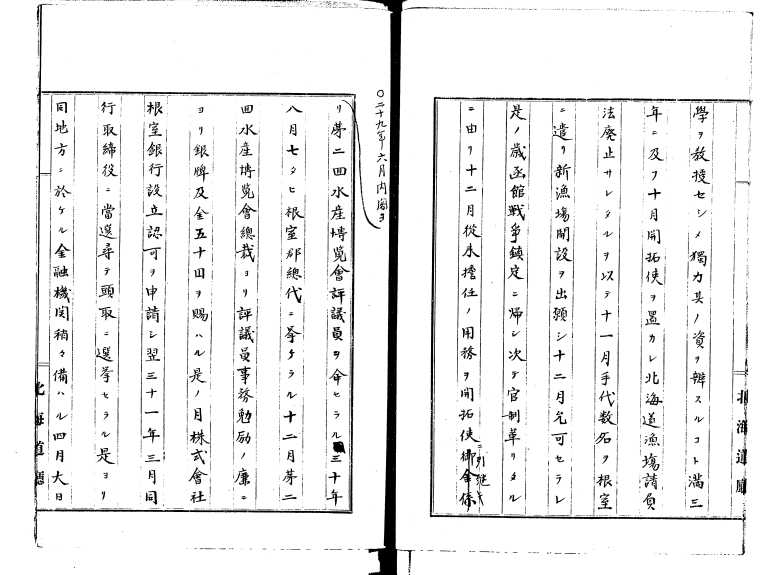 學ヲ教授セシメ獨力其ノ資ヲ辨スルコト滿三
年ニ及フ十月開拓使ヲ置カレ北海道漁塲請負
法廢止サレタルヲ以テ十一月手代数名ヲ根室
ニ遣リ新漁塲開設ヲ出願シ十二月允可セラレ
是ノ歳函館戰爭鎮定ニ帰シ次テ官制革リタル
ニ由リ十二月從来擔任ノ用務ヲ開拓使御金係
ニ引継キ
北海道廳
〇二十九年六月内閣ヨ
リ第二回水産博覧會評議員ヲ命セラル三十年
八月七タヒ根室郡總代ニ挙ケラル十二月第二
回水産博覧會總裁ヨリ評議員事務勉励ノ廉ニ
ヨリ銀牌及金五十円ヲ賜ハル是ノ月株式會社
根室銀行設立認可ヲ申請シ翌三十一年三月同
行取締役ニ當選尋テ頭取ニ選挙セラル是ヨリ
同地方ニ於ケル金融機関稍々備ハル四月大日
北海道廳